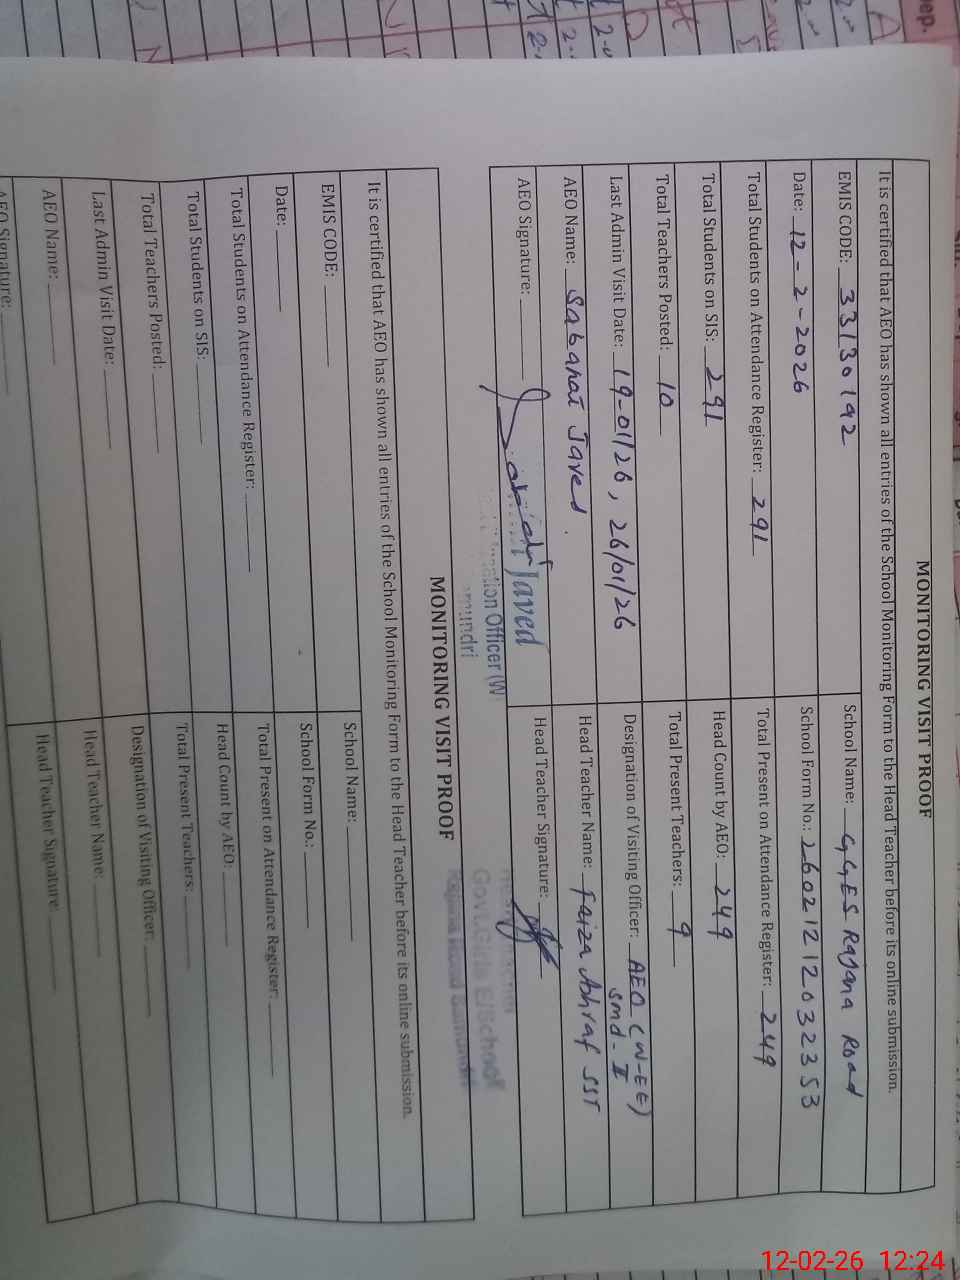 MONITORING VISIT PROOF
It is certified that AEO has shown all entries of the School Monitoring Form to the Head Teacher before its online submission.
EMIS CODE: 33130192
School Name: GGES Rajana Road
Date: 12-2-2026
School Form No.: 26021212032353
Total Students on Attendance Register: 291
Total Present on Attendance Register: 249
Total Students on SIS: 291
Head Count by AEO: 249
Total Teachers Posted: 10
Total Present Teachers: 9
Last Admin Visit Date: 19-01/26, 26/01/26
Designation of Visiting Officer: AEO (W-EE)
smd-II
AEO Name: Sabahat Javed
Head Teacher Name: Faiza Ashraf SST
AEO Signature:
Head Teacher Signature:
Javed
Officer (W
Govt.Girls E/School
MONITORING VISIT PROOF
It is certified that AEO has shown all entries of the School Monitoring Form to the Head Teacher before its online submission.
EMIS CODE:
School Name:
Date:
School Form No.:
Total Students on Attendance Register:
Total Present on Attendance Register:
Total Students on SIS:
Head Count by AEO:
Total Teachers Posted:
Total Present Teachers:
Last Admin Visit Date:
Designation of Visiting Officer:
AEO Name:
Head Teacher Name:
AEO Signature:
Head Teacher Signature:
12-02-26 12:24